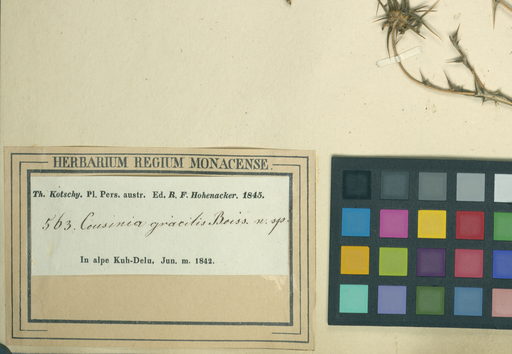 HERBARIUM REGIUM MONACENSE.
Th. Kotschy. Pl. Pers. austr. Ed. R. F. Hohenacker. 1845.
563. Cousinia gracilis Boiss. n. sp.
In alpe Kuh-Delu. Jun. m. 1842.